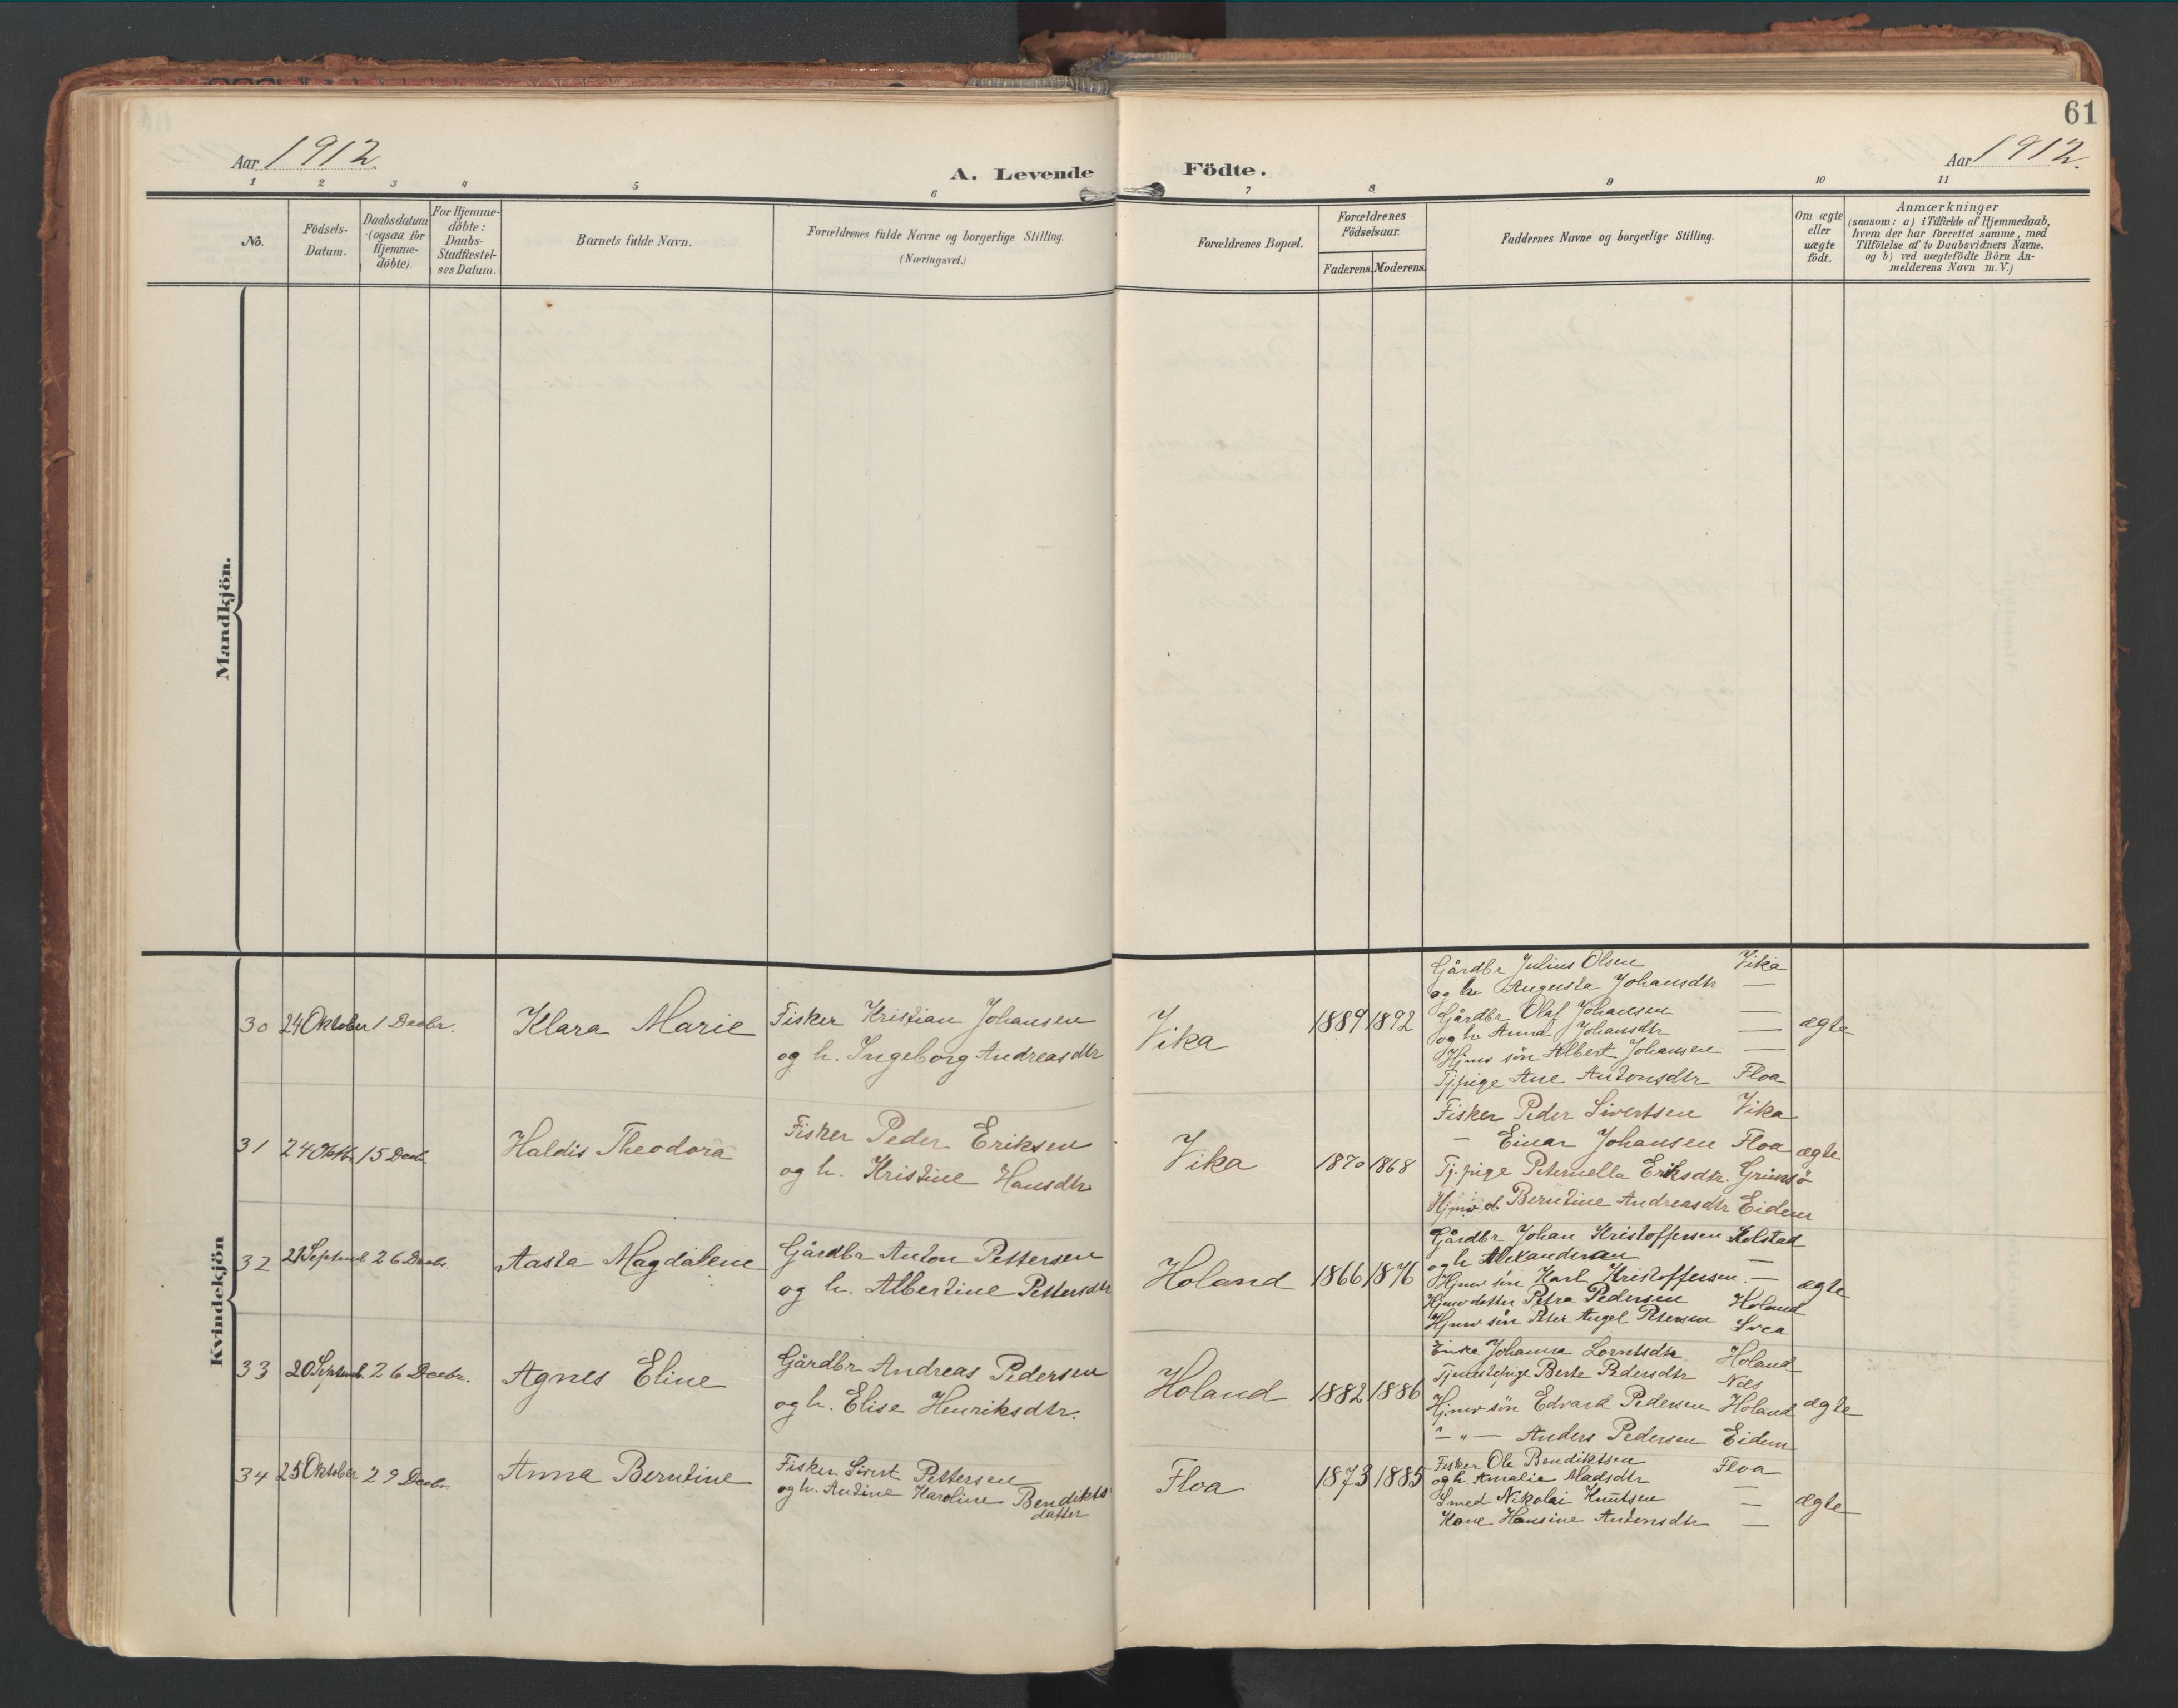 61
Aar 1912.
Aar 1912.
A. Levende Födte.
1 2 3 4 5 6 7 8 9 10 11
No.
Födsels-
Datum.
Daabsdatum
(ogsaa for
Hjemme-
döbte).
For Hjemme-
döbte:
Daabs-
Stadfæstel-
ses Datum.
Barnets fulde Navn.
Forældrenes fulde Navne og borgerlige Stilling.
(Næringsvei.)
Forældrenes Bopæl.
Forældrenes
Födselsaar.
Faderens. Moderens.
Faddernes Navne og borgerlige Stilling.
Om ægte
eller
uægte
födt.
Anmærkninger
(saasom: a) i Tilfælde af Hjemmedaab,
hvem der har forrettet samme, med
Tilföielse af to Daabsvidners Navne.
og b) ved uægtefödte Börn An-
melderens Navn m. V.)
Mandkjön.
Kvindekjön
30 24 Oktober 1 Decbr. Klara Marie
Fisker Kristian Johansen
og h. Ingeborg Andreasdtr
Vika 1889 1892
Gårdbr Julius Olsen Vika
og h. Augusta Johansdtr —
Gårdbr Olaf Johansen —
og h. Anna Johansdtr —
Hjmv søn Albert Johansen —
Tj.pige Ane Antonsdtr Floa
ægte
31 24 Oktb. 15 Decb. Haldis Theodora
Fisker Peder Eriksen
og h. Kristine Hansdtr
Vika 1870 1868
Fisker Peder Sivertsen Vika
— Einar Johansen Floa
Tj.pige Peternella Eriksdtr. Grimsö
Hjmv d. Berntine Andreasdtr Eidem
ægte
32 Septemb 26 Decbr. Aasta Magdalene
Gårdbr Anton Pettersen
og h. Albertine Pettersdtr
Holand 1866 1876
Gårdbr Johan Kristoffersen Kolstad
og h. —
Hjmv søn Karl Kristoffersen. —
Hjmv datter Petra Pedersen Holand
Hjmv søn Peter Angel Petersen
ægte
33 20 Septemb. 26 Decbr. Agnes Eline
Gårdbr Andreas Pedersen
og h. Elise Henriksdtr.
Holand 1882 1886
Enke Johanna Lorntsdtr Holand
Tjenestepige Berte Pedersdtr
Hjmv søn Edvard Pedersen Holand
— „ — Anders Pedersen Eidem
ægte
34 25 Oktober 29 Decbr. Anna Berntine
Fisker Sivert Pettersen
og h. Antine Karoline Bendikts
datter
Floa 1873 1885
Fisker Ole Bendiktsen Floa
og h. Amalie Madsdtr —
Smed Nikolai Knutsen —
Kone Hansine Antonsdtr —
ægte